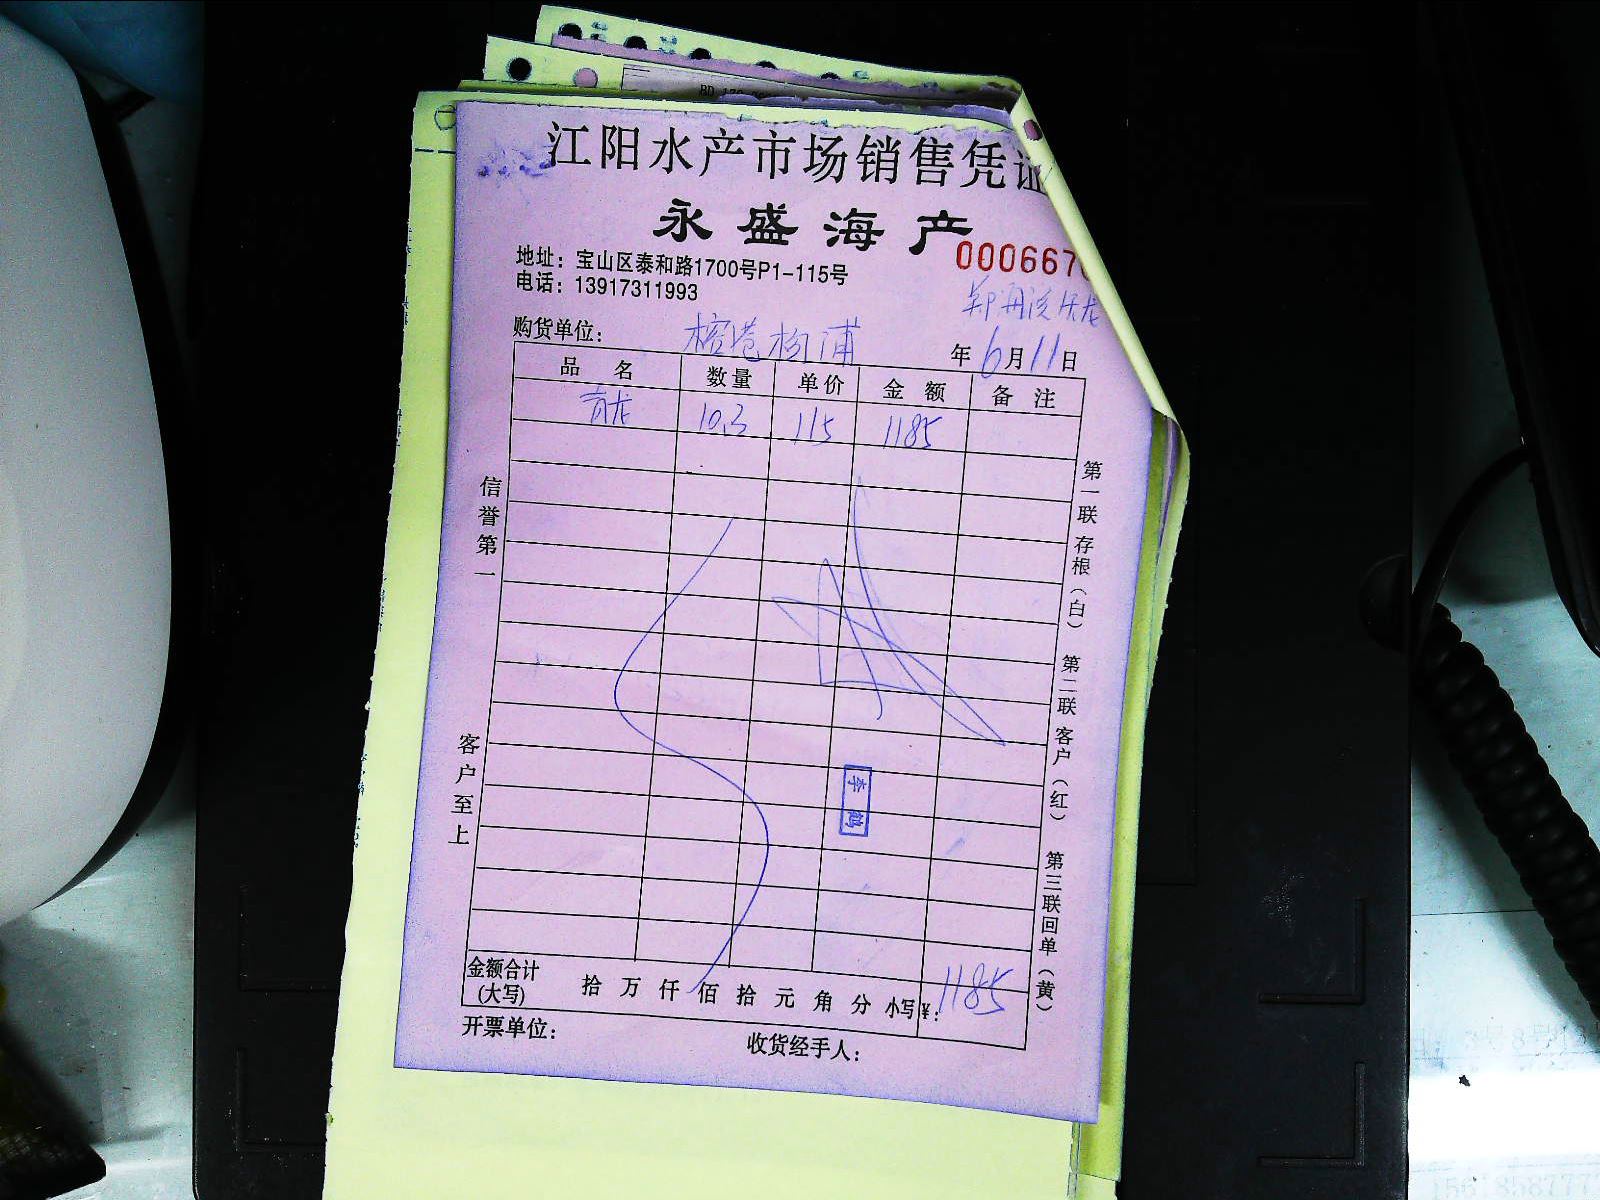 江阳水产市场销售凭证
永盛海产
000667
地址：宝山区泰和路1700号P1-115号
电话：13917311993
购货单位：榕港杨浦
年6月11日
品名 数量 单价 金额 备注
青龙 10.3 115 1185
信誉第一
客户至上
第一联存根（白） 第二联客户（红） 第三联回单（黄）
李鹤
金额合计(大写) 拾万仟佰拾元角分 小写¥：1185
开票单位：
收货经手人：